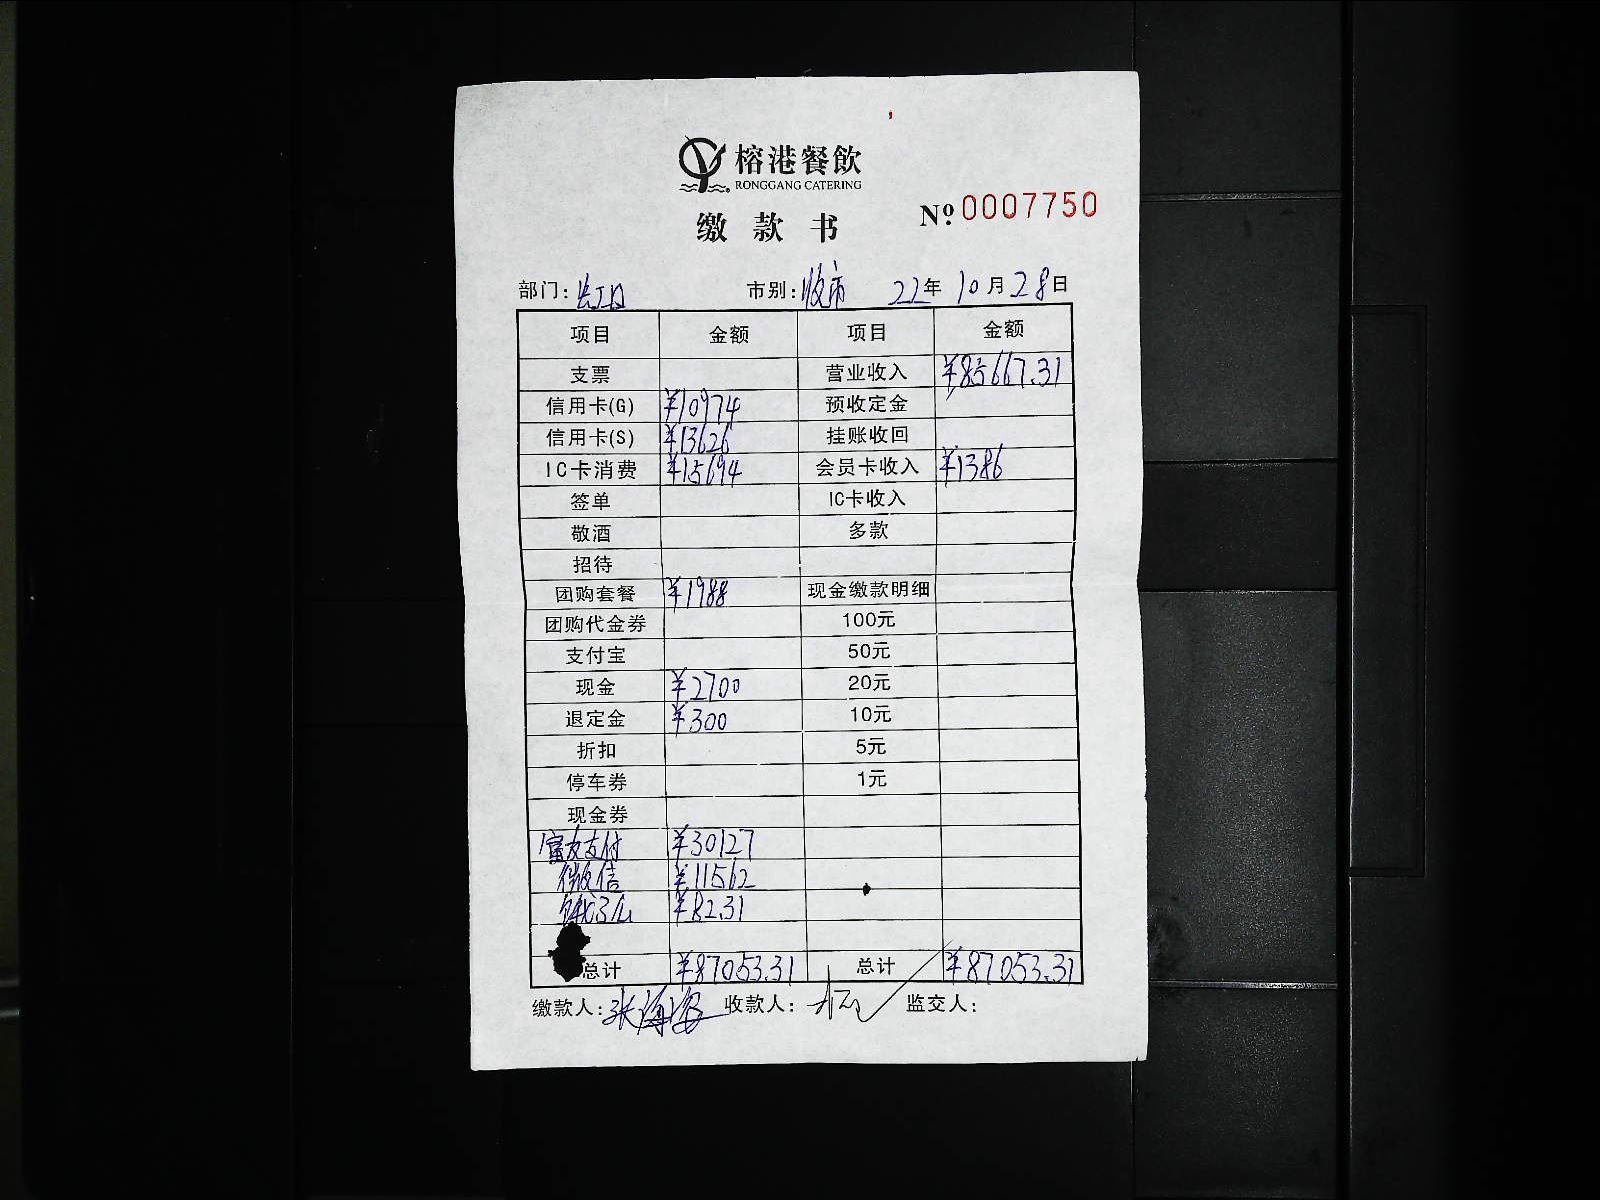 榕港餐飲
RONGGANG CATERING
缴款书 №0007750
部门: 市别:收市 22年10月28日
项目 金额 项目 金额
支票 营业收入 ¥85667.31
信用卡(G) ¥10974 预收定金
信用卡(S) ¥13626 挂账收回
IC卡消费 ¥15694 会员卡收入 ¥1386
签单 IC卡收入
敬酒 多款
招待
团购套餐 ¥1988 现金缴款明细
团购代金券 100元
支付宝 50元
现金 ¥2700 20元
退定金 ¥300 10元
折扣 5元
停车券 1元
现金券
富友支付 ¥30127
微信 ¥11562
饿了么 ¥82.31
总计 ¥87053.31 总计 ¥87053.31
缴款人:张海 收款人: 监交人: